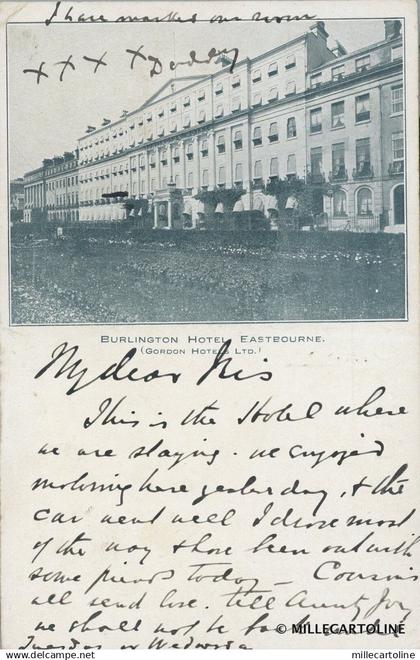 I have marked our room
x x x x Daddy
BURLINGTON HOTEL, EASTBOURNE.
(GORDON HOTELS LTD.)
My dear Iris
This is the Hotel where
we are staying. we enjoyed
motoring here yesterday, & the
car went well I drove most
of the way & have been out with
some friends today — Cousins
all send love. tell Aunty Joy
we shall not be back till
Tuesday or Wednesday
© MILLECARTOLINE